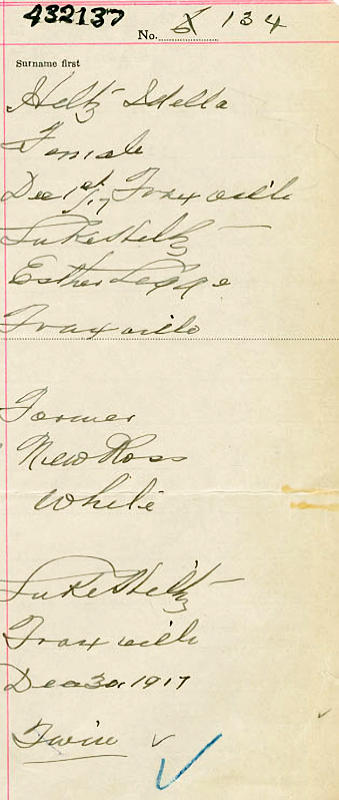 432137
No. 5 134
Surname first
Heltz Idella
Female
Dec 1st/17 Fraxville
Luke Heltz
Esther Legge
Fraxville
Farmer
New Ross
White
Luke Heltz
Fraxville
Dec 30, 1917
Twin